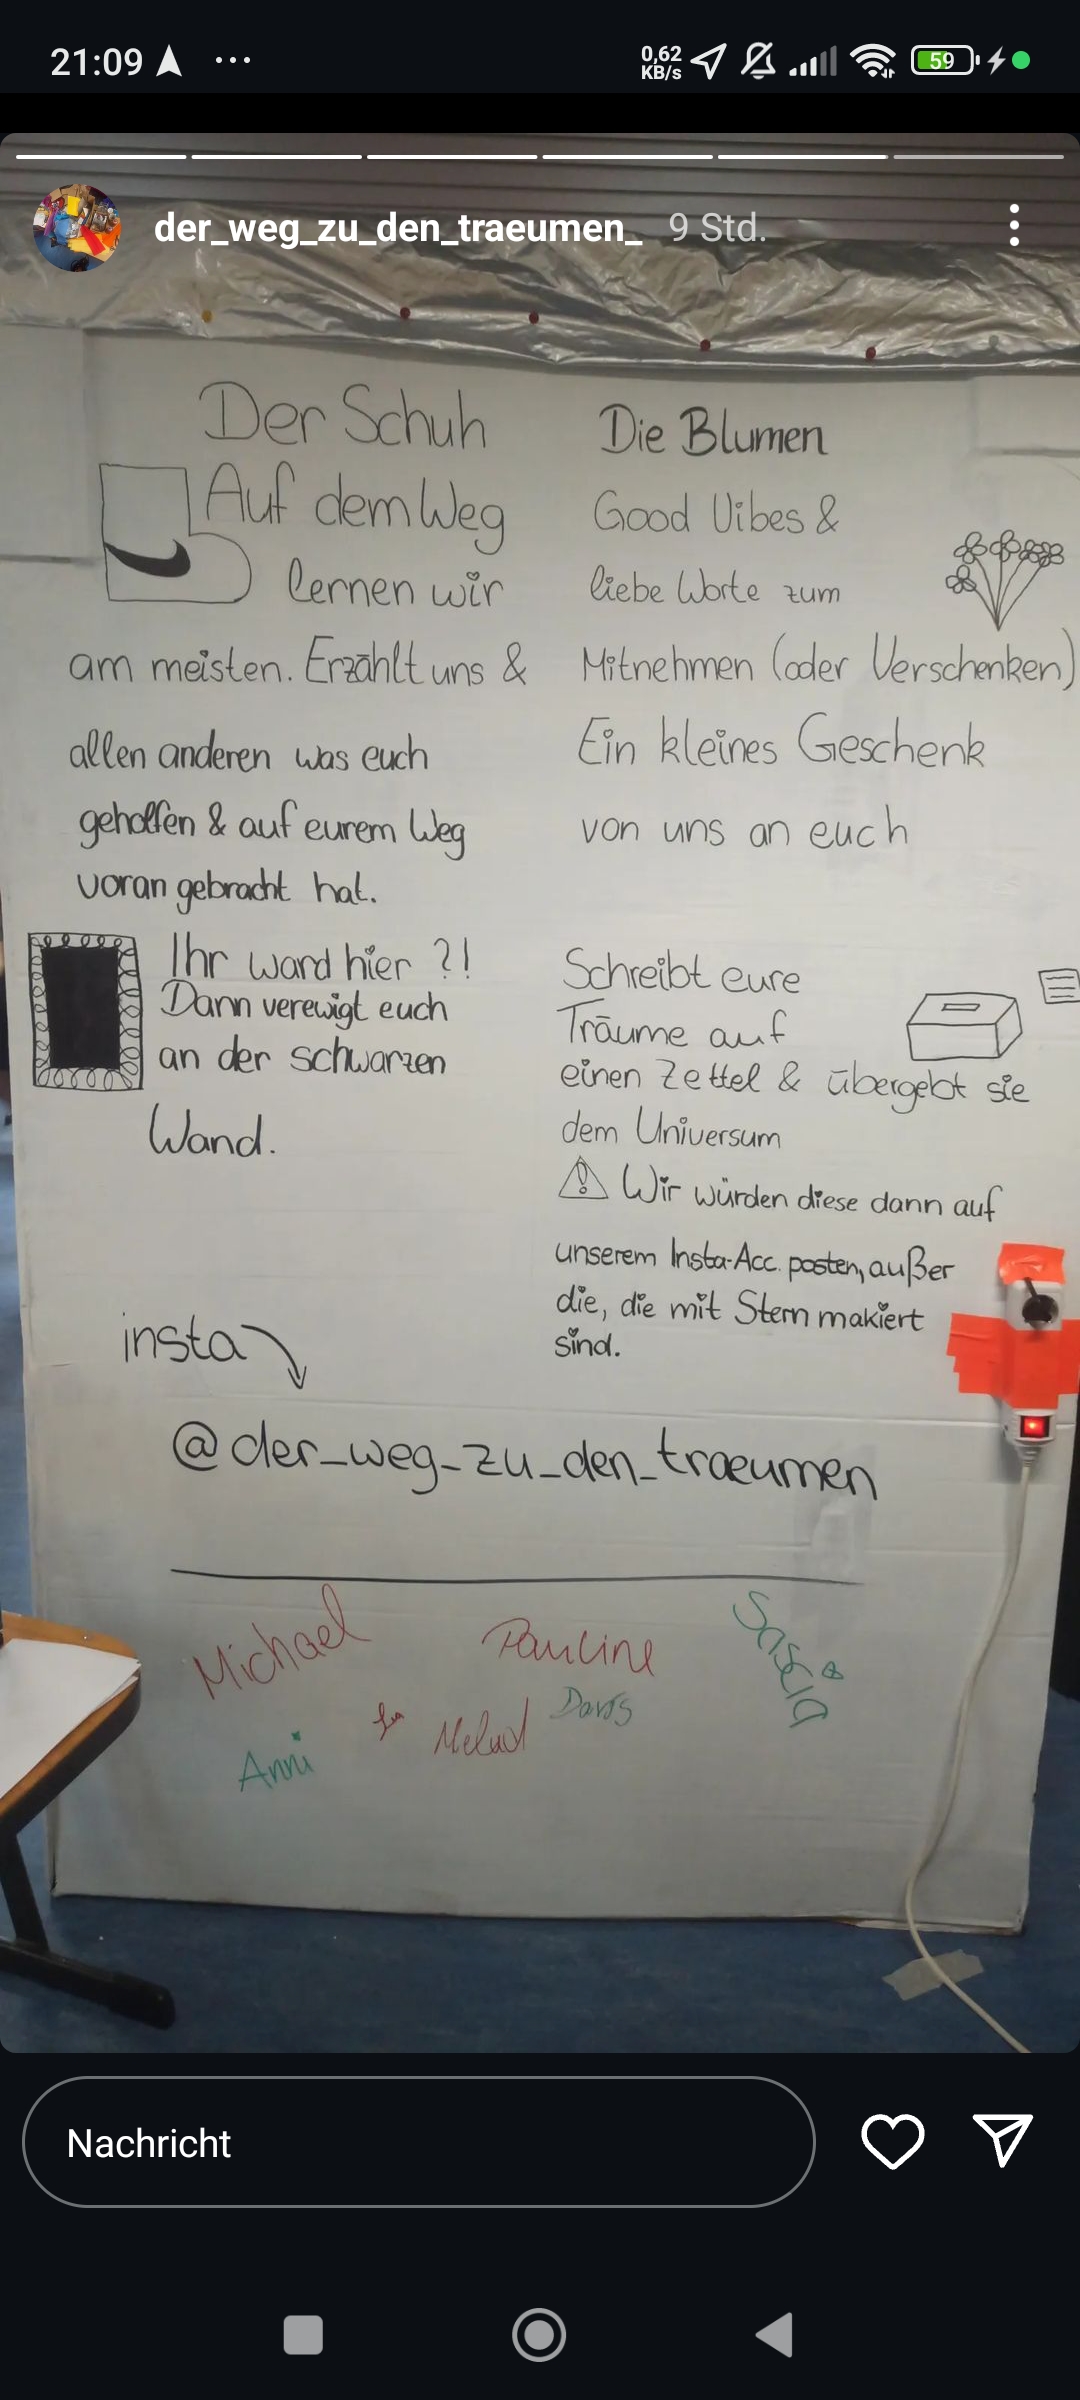 21:09
0,62
KB/s
59
der_weg_zu_den_traeumen_ 9 Std.
Der Schuh
Auf dem Weg
lernen wir
am meisten. Erzählt uns &
allen anderen was euch
geholfen & auf eurem Weg
voran gebracht hat.
Die Blumen
Good Vibes &
liebe Worte zum
Mitnehmen (oder Verschenken)
Ein kleines Geschenk
von uns an euch
Ihr ward hier ?!
Dann verewigt euch
an der schwarzen
Wand.
Schreibt eure
Träume auf
einen Zettel & übergebt sie
dem Universum
Wir würden diese dann auf
unserem Insta-Acc. posten, außer
die, die mit Stern makiert
sind.
insta
@der_weg_zu_den_traeumen
Michael
Pauline
Sascia
Anni
Nachricht